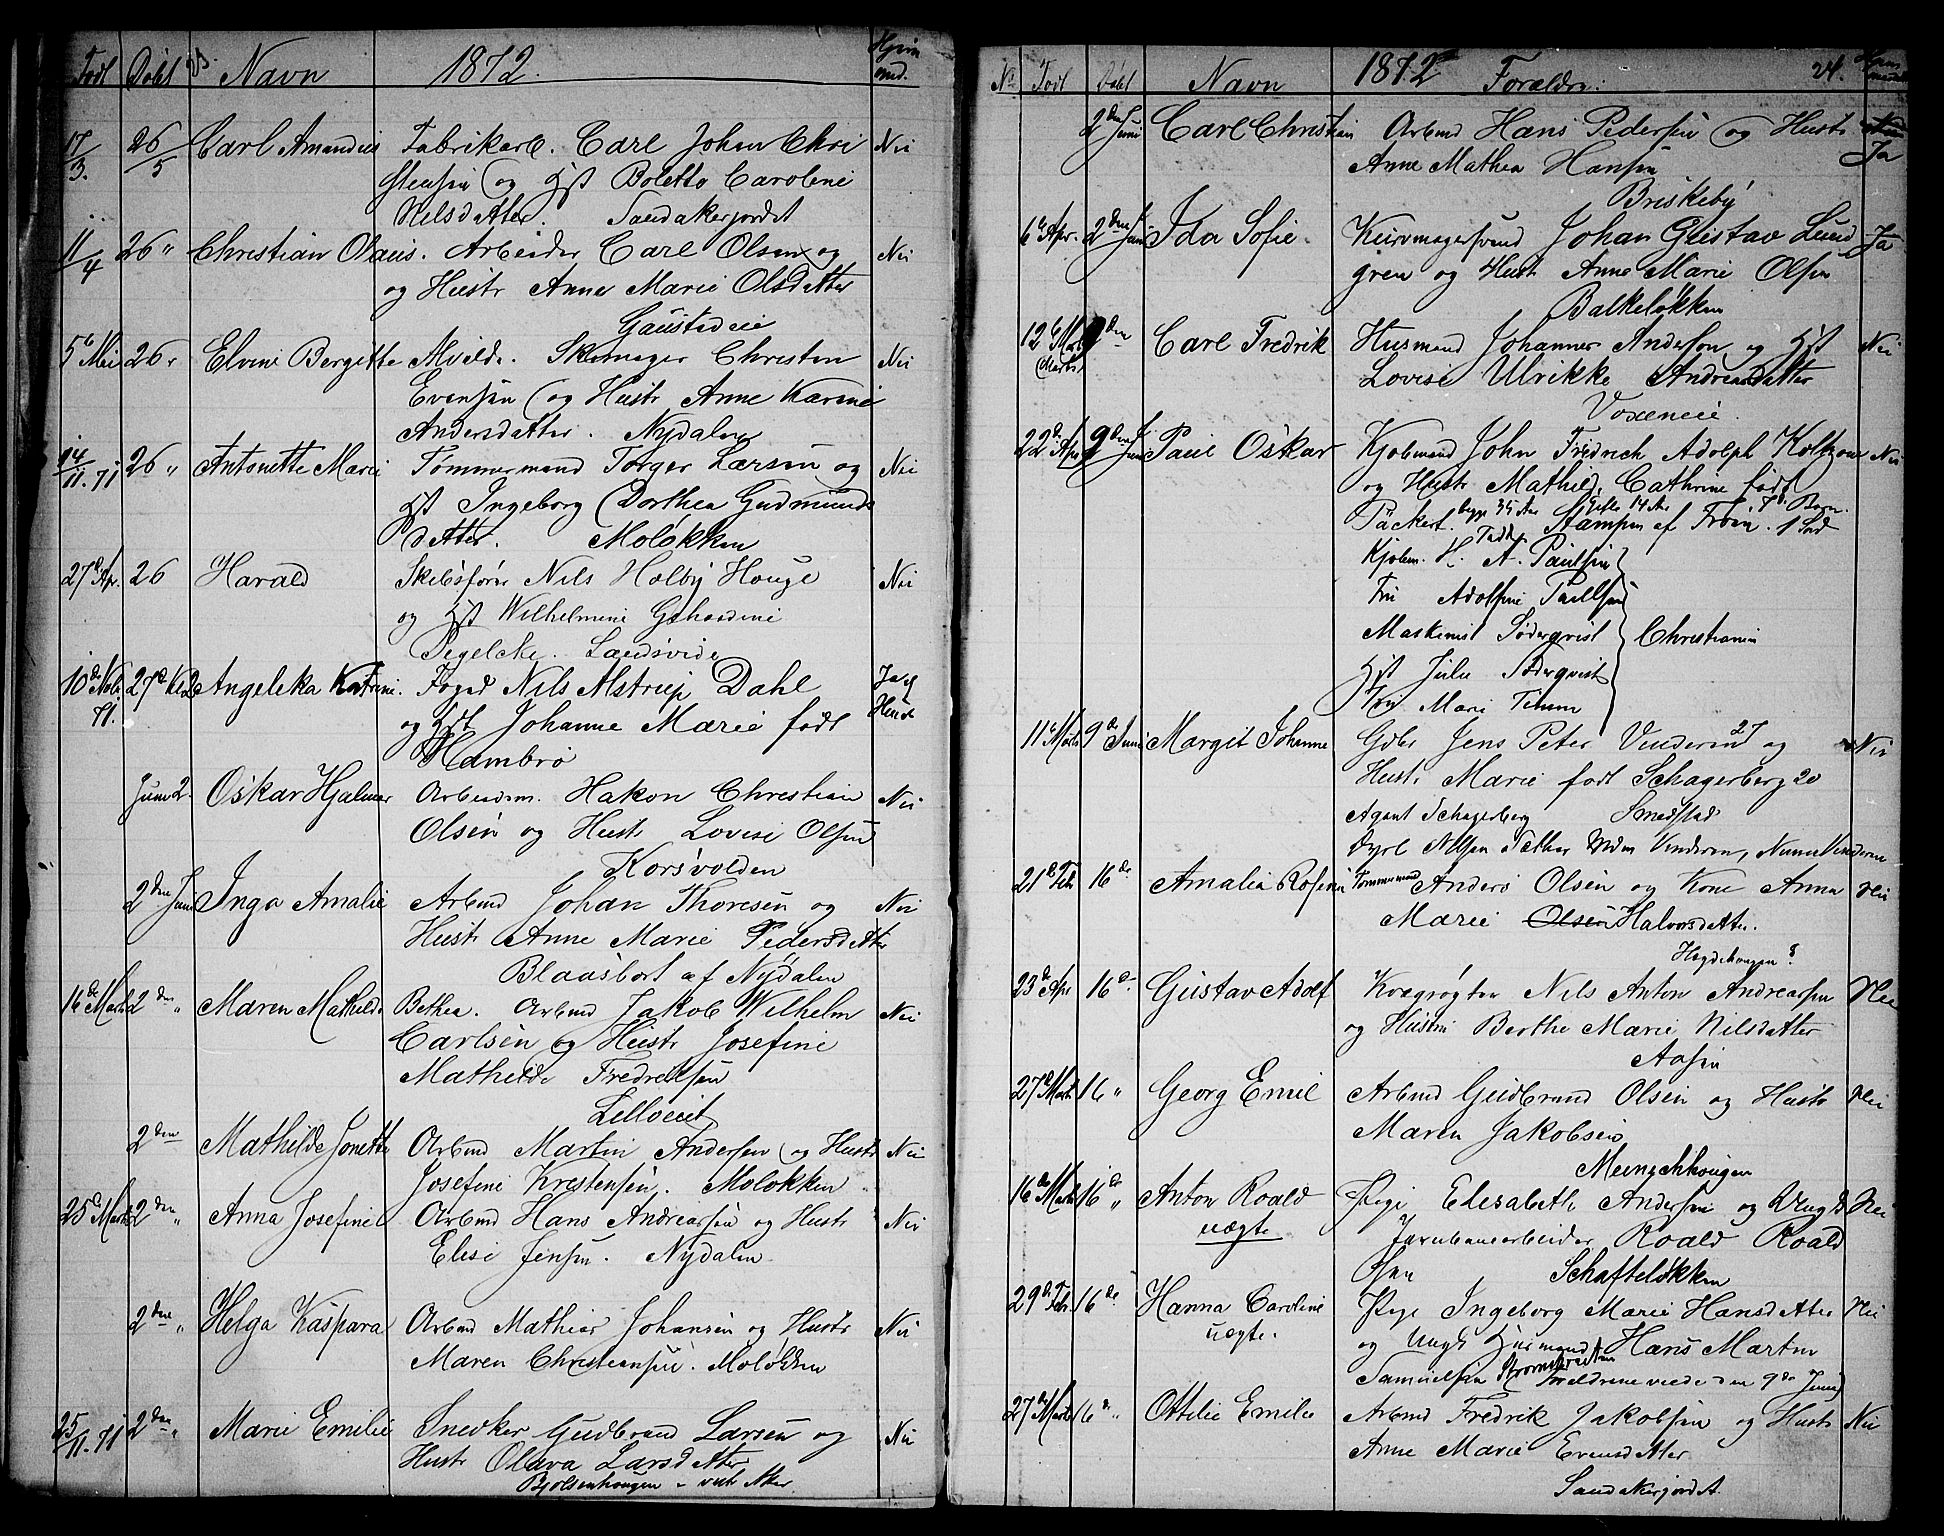 Født Døbt 23. Navn 1872. Hjem
med.
17/3. 26/5 Carl Amandus Fabrikarb. Carl Johan Chri Nei
stensen og Hst Bolette Caroline
Nilsdatter. Sandakerjordet
11/4 26 " Christian Olaus. Arbeider Carl Olsen og Nei
og Hustr Anne Marie Olsdatter
Gaustadeie
5te Mai 26 " Elvine Bergitte Alvilde. Skomager Christen Nei
Evensen og Hustr Anne Karine
Andersdatter. Nydalen
14/11.71 26 " Antonette Marie Tømmermand Torger Larsen og Nei
Hst Ingeborg Dorthea Gudmunds
datter. Moløkken
27de Apr. 26 Harald Skibsfører Nils Holby Houge Nei
og Hst Wilhelmine
Sandsvide
10de 27de Kl 2 Angelika Katrine. Foged Nils Alstrup Dahl Ja
71. og Hst Johanne Marie født
Hambro
Juni 2. Oskar Hjalmar Arbeidsm. Hakon Christian Nei
Olsen og Hustr Lovise Olsen
Korsvolden
2den Juni Inga Amalie Arbmd Johan Thoresen og Nei
Hustr Anne Marie Pedersdatter
Blaasbort af Nydalen
16de Marts 2den " Maren Mathilde Bethea. Arbmd Jakob Wilhelm Nei
Carlsen og Hustr Josefine
Mathilde Fredriksen
Lilloeiet
2den Mathilde Jonette Arbmd Martin Andersen og Hustr Nei
Josefine Kristensen. Moløkken
25de Marts 2den " Anna Josefine Arbmd Hans Andreassen og Hustr Nei
Elise Jensen. Nydalen
2den " Helga Kaspara Arbmd Mathias Johansen og Hustr Nei
Maren Christiansen. Moløkken
25/11.71 2den " Marie Emilie Snedker Gudbrand Larsen og Nei
Hustr Olava Larsdatter
Bjølsenhougen - vest Aker
No Født Døbt Navn 1872 Forældre. 24. Hjem
med
2den Juni Carl Christian Arbmd Hans Pedersen og Hustr
Anne Mathea Hansen Ja
Briskeby
6te Apr. 2den Juni Ida Sofie. Kurvmagersvend Johan Gustav Lund Ja
gren og Hustr Anne Marie Olsen
Balkeløkken
12te Marts 9den Carl Fredrik Husmand Johannes Anderson og Hst Nei
(Marts) Lovise Ulrikke Andreasdatter
Voxeneie
22de Apr 9den Juni Paul Oskar Kjøbmand John Fredrich Adolph Holtzom Nei
og Hustr Mathild. Cathrine født
Päckert. begge 34 Aar Gifte 14 Aar 7de Barn.
Stampen af Frøen. 1 Død
Fadd.
Kjøbm. H. A. Paulsen
Fru Adolfine Paulsen
Maskinist Søderqvist Christiania
Hst Julie Søderqvist
Fru Mari Timm
11te Marts 9de Juni Margit Johanne Gdbr Jens Peter Vinderen 27 og Nei
Hustr Marie født Schagerberg 20
Agent Schagerberg Smedstad
Dyrl Nilsen Sæther Mdm Vinderen, Nunne Vinderen
21de Feb 16de Amalia Rosine Tømmermand Anders Olsen og Kone Anna Nei
Marie Olsen Halvorsdatter.
Hægdehougen ?
23de Apr 16de Gustav Adolf Kvægrøgter Nils Anton Andreassen Nei
og Hustru Berthe Marie Nilsdatter
Aasen
27de Marts 16 " Georg Emil Arbmd Gudbrand Olsen og Hustr Nei
Maren Jakobsen
Meinichhougen
16de Marts 16de " Anton Roald Pige Elisabeth Andersen og Ungk Nei
uægte Jernbanearbeider Roald Roald
sen Schafteløkken
29de Feb 16de Hanna Caroline Pige Ingeborg Marie Hansdatter Nei
uægte. og Ungk Husmand Hans Martin
Samuelsen Forældrene viede den 9de Juni
27de Marts 16de " Ottilie Emilie Arbmd Fredrik Jakobsen og Hustr Nei
Anne Marie Evensdatter
Sandakerjordet.